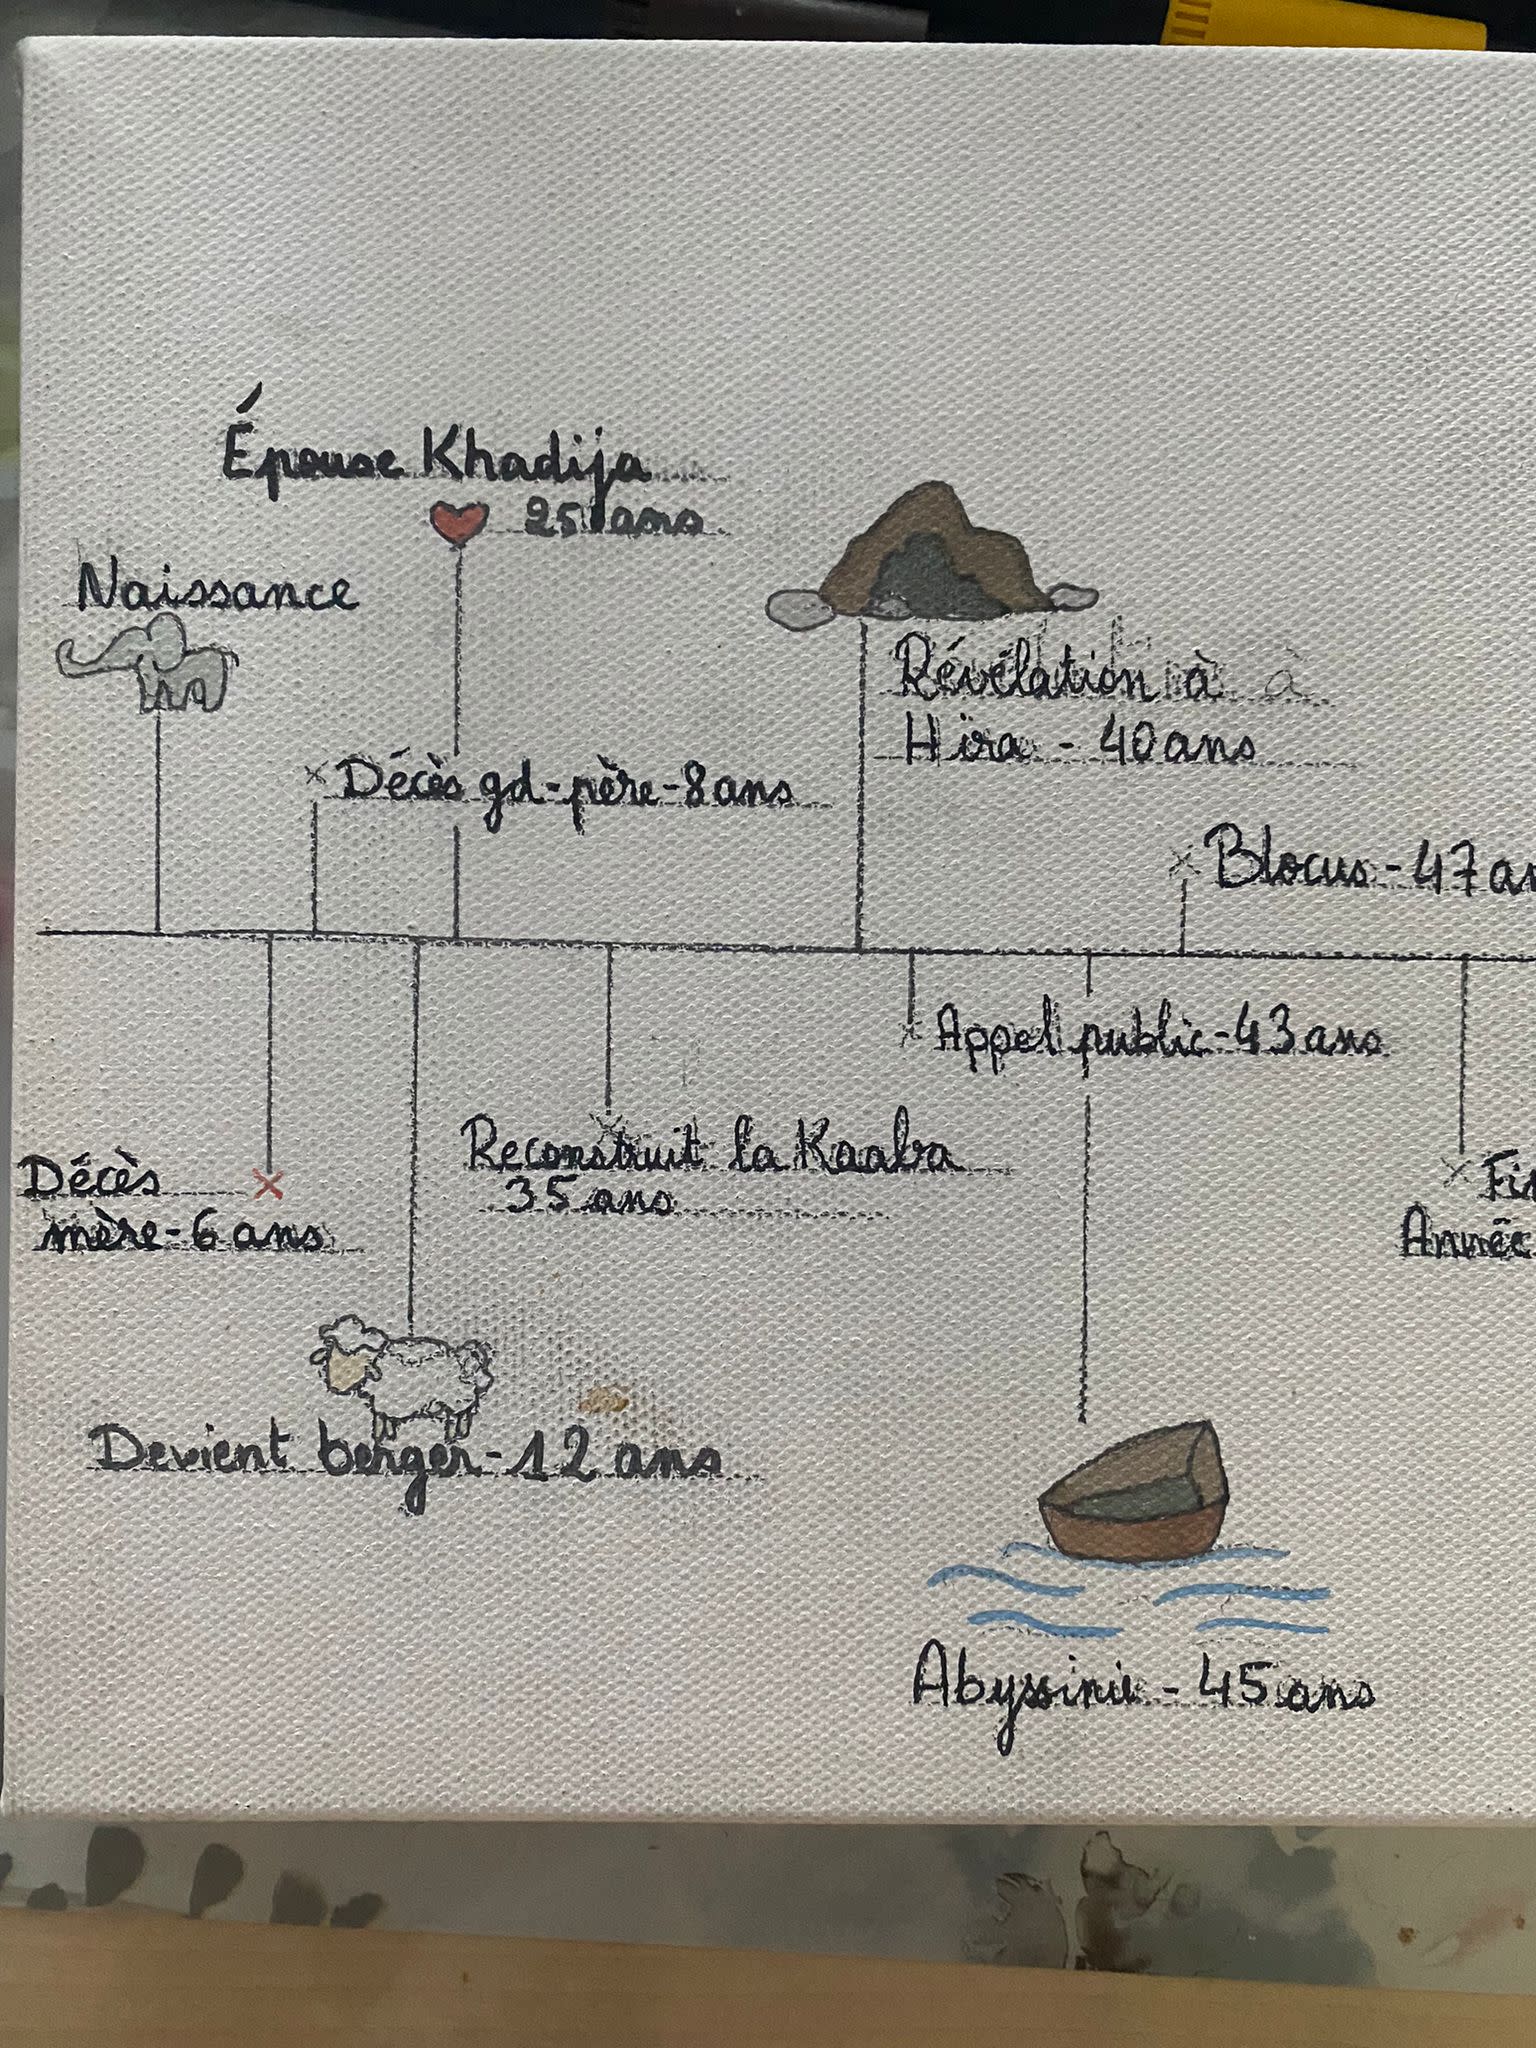 Épouse Khadija
25 ans
Naissance
Révélation à
Hira - 40 ans
Décès gd-père-8 ans
Blocus - 47 an
Appel public-43 ans
Reconstruit la Kaaba
35 ans
Décès
mère-6 ans
Fin
Année
Devient berger-12 ans
Abyssinie - 45 ans